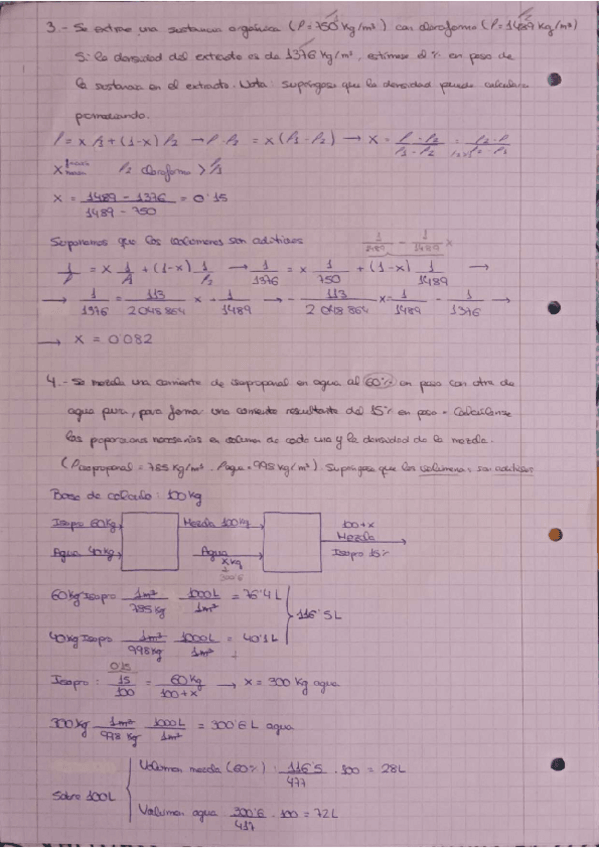 3.- Se extrae una sustancia orgánica (ρ=750 Kg/m³) con cloroformo (ρ=1489 Kg/m³)
Si la densidad del extracto es de 1376 Kg/m³, estimese el % en peso de
la sustancia en el extracto. Nota: supóngase que la densidad puede calcularse
ponderando.
ρ = x ρ₁ + (1-x) ρ₂ → ρ-ρ₂ = x(ρ₁-ρ₂) → x = (ρ-ρ₂)/(ρ₁-ρ₂) = (ρ₂-ρ)/(ρ₂-ρ₁)
ρ₂ cloroformo > ρ₁
x = (1489 - 1376)/(1489 - 750) = 0'15
Suponemos que los volúmenes son aditivos
1/ρ = x 1/ρ₁ + (1-x) 1/ρ₂ → 1/1376 = x 1/750 + (1-x) 1/1489 →
→ 1/1376 = 113/2048864 x - 1/1489 → - 113/2048864 x = 1/1489 - 1/1376 →
→ x = 0'082
4.- Se mezcla una corriente de isopropanol en agua al 60% en peso con otra de
agua pura, para formar una corriente resultante del 15% en peso. Calcúlense
las proporciones necesarias en volumen de cada una y la densidad de la mezcla.
(ρisopropanol = 785 Kg/m³. ρagua = 998 Kg/m³). Supóngase que los volúmenes son aditivos
Base de cálculo: 100 kg
Isopro 60Kg Mezcla 100kg 100+x
Mezcla
Agua 40kg Agua Isopro 15%
x kg
300'6
60Kg Isopro 1m³/785Kg 1000L/1m³ = 76'4 L
116'5L
40Kg Isopro 1m³/998Kg 1000L/1m³ = 40'1L
0'15
Isopro: 15/100 = 60Kg/(100+x) → x = 300 Kg agua
300kg 1m³/998 Kg 1000L/1m³ = 300'6 L agua
Volumen mezcla (60%): 116'5/477 · 100 = 28L
Sobre 100L
Volumen agua 300'6/417 · 100 = 72L